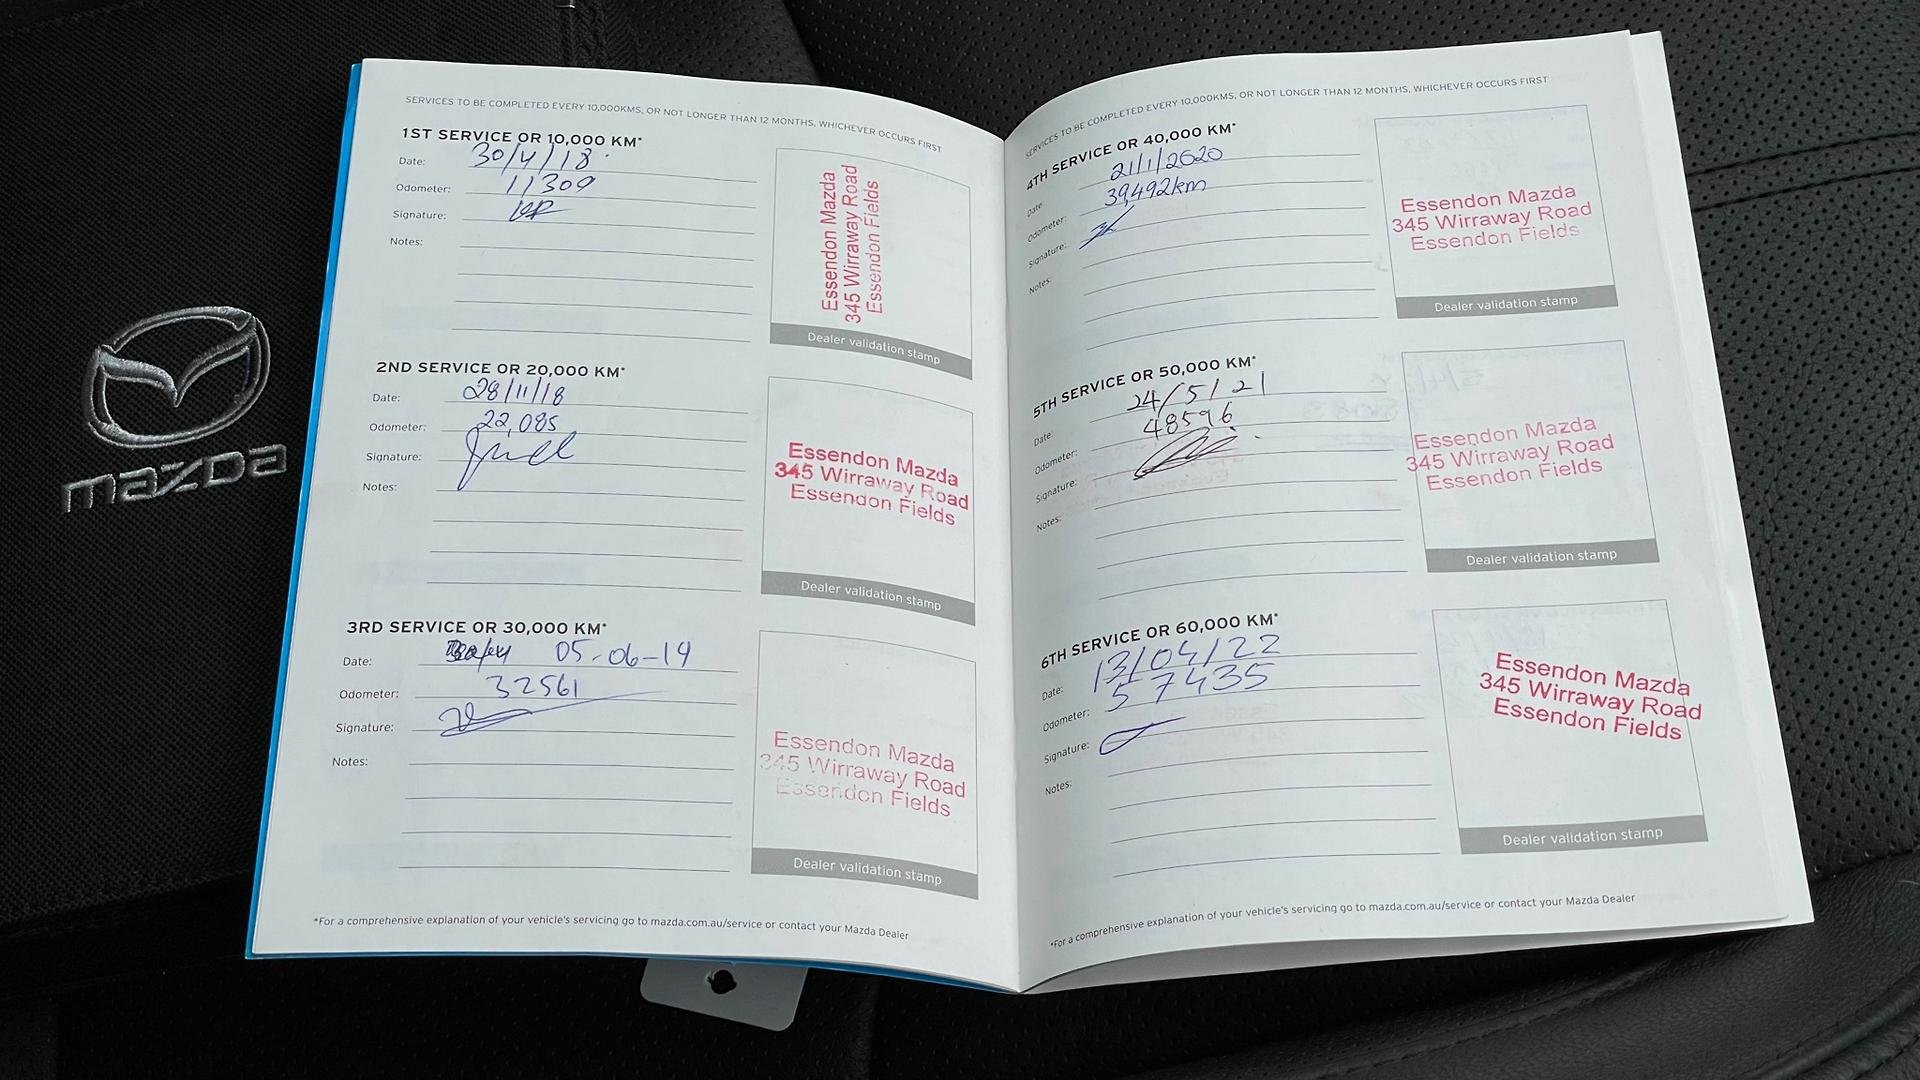 mazda
SERVICES TO BE COMPLETED EVERY 10,000KMS, OR NOT LONGER THAN 12 MONTHS, WHICHEVER OCCURS FIRST
1ST SERVICE OR 10,000 KM*
Date: 30/4/18
Odometer: 11309
Signature:
Notes:
Essendon Mazda
345 Wirraway Road
Essendon Fields
Dealer validation stamp
2ND SERVICE OR 20,000 KM*
Date: 28/11/18
Odometer: 22,085
Signature:
Notes:
Essendon Mazda
345 Wirraway Road
Essendon Fields
Dealer validation stamp
3RD SERVICE OR 30,000 KM*
Date: 05-06-19
Odometer: 32561
Signature:
Notes:
Essendon Mazda
345 Wirraway Road
Essendon Fields
Dealer validation stamp
*For a comprehensive explanation of your vehicle's servicing go to mazda.com.au/service or contact your Mazda Dealer
SERVICES TO BE COMPLETED EVERY 10,000KMS, OR NOT LONGER THAN 12 MONTHS, WHICHEVER OCCURS FIRST
4TH SERVICE OR 40,000 KM*
Date: 21/1/2020
Odometer: 39,492km
Signature:
Notes:
Essendon Mazda
345 Wirraway Road
Essendon Fields
Dealer validation stamp
5TH SERVICE OR 50,000 KM*
Date: 24/5/21
Odometer: 48596
Signature:
Notes:
Essendon Mazda
345 Wirraway Road
Essendon Fields
Dealer validation stamp
6TH SERVICE OR 60,000 KM*
Date: 13/04/22
Odometer: 57435
Signature:
Notes:
Essendon Mazda
345 Wirraway Road
Essendon Fields
Dealer validation stamp
*For a comprehensive explanation of your vehicle's servicing go to mazda.com.au/service or contact your Mazda Dealer